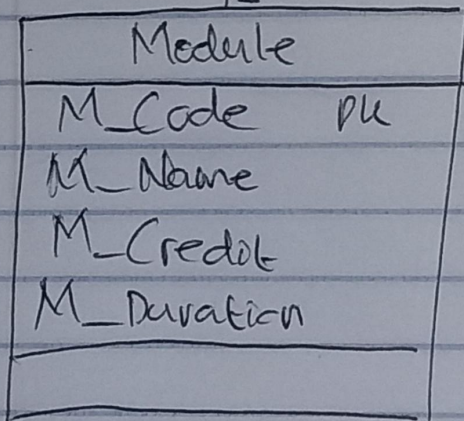 Module
M_Code PK
M_Name
M_Credit
M_Duration